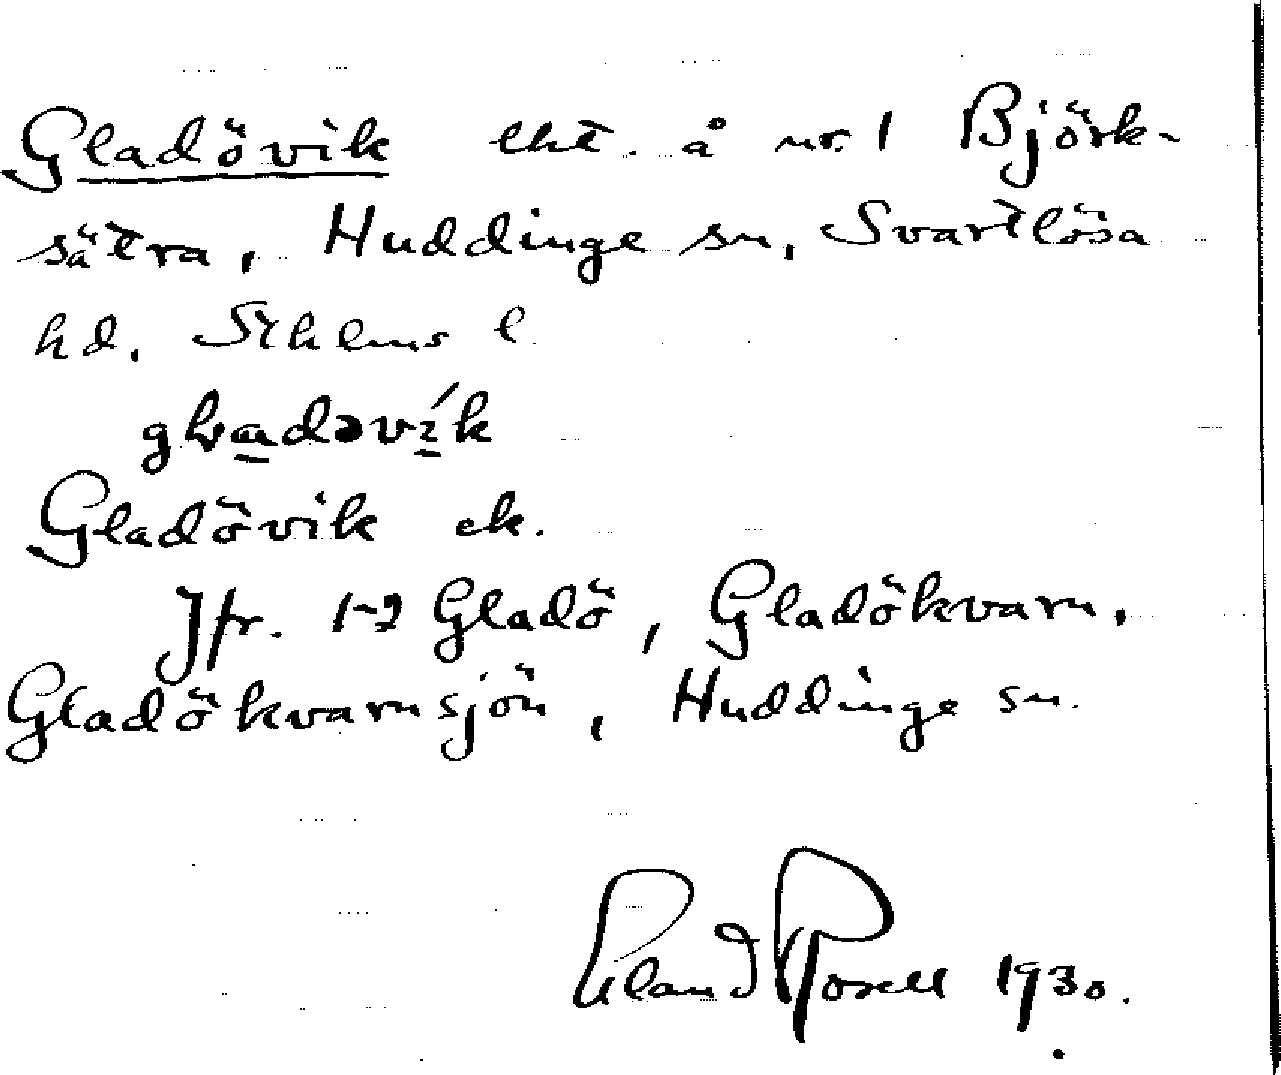 Gladövik lht. å nr. 1 Björk-
sätra, Huddinge sn, Svartlösa
hd. Sthlms l
gladəvík
Gladövik ek.
Jfr. 1-2 Gladö, Gladökvarn,
Gladökvarnsjön, Huddinge sn.
Erland Rosell 1930.